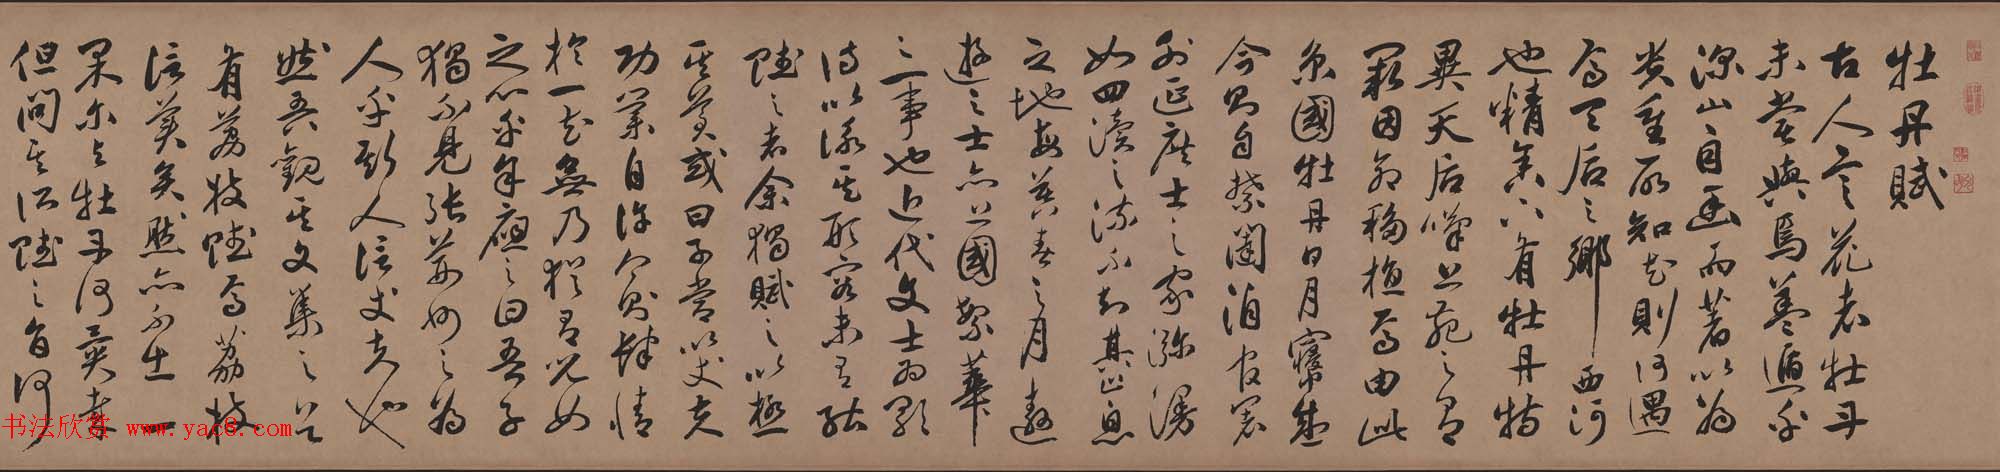 牡丹賦
古人言花者牡丹
未嘗與焉蓋遁乎
深山自幽而著以為
貴重所知花則何遇
焉天后之鄉西河
也精舍下有牡丹特
異天后嘆上苑之有
闕因命移植焉由此
京國牡丹日月寖盛
今則自禁闥洎官署
外延庶士之家瀰漫
如四瀆之流不知其止息
之地每暮春之月遨
遊之士亦上國繁華
之一事也近代文士為歌
詩以詠其形容未有能
賦之者余獨賦之以極
其美或曰子嘗以丈夫
功業自許今則肆情
於一花無乃猶有兒女
之心乎余應之曰吾子
獨不見張荊州之為
人乎斯人信丈夫也
然吾觀其文集之首
有荔枝賦焉荔枝
信美矣然亦不出一
果爾與牡丹何異哉
但問其所賦之旨何
书法欣赏 www.yac8.com